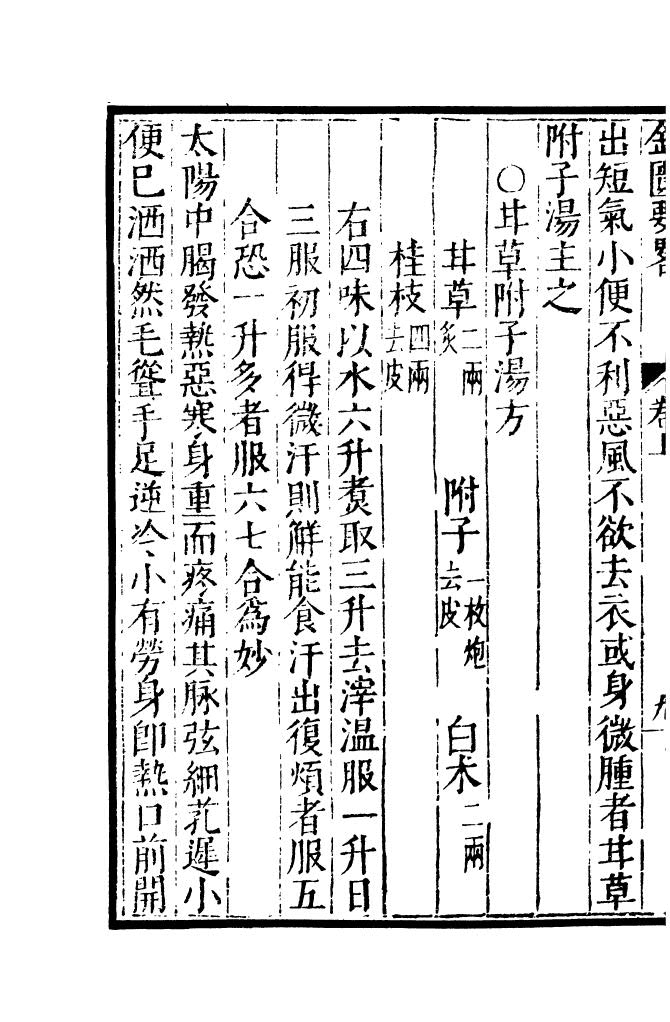 金匱要畧 卷上
出短氣小便不利惡風不欲去衣或身微腫者甘草
附子湯主之
○甘草附子湯方
甘草二兩炙 附子一枚炮去皮 白术二兩
桂枝四兩去皮
右四味以水六升煑取三升去滓温服一升日
三服初服得微汗則解能食汗出復煩者服五
合恐一升多者服六七合爲妙
太陽中暍發熱惡寒身重而疼痛其脉弦細芤遲小
便已洒洒然毛聳手足逆冷小有勞身即熱口前開